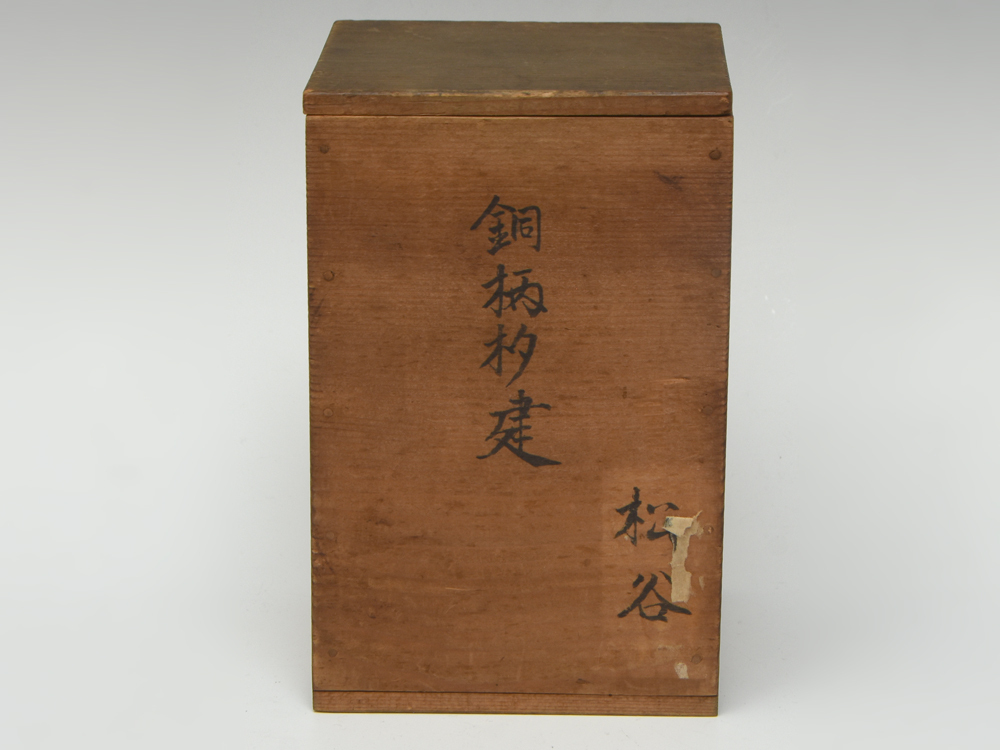 銅柄杓建
松谷